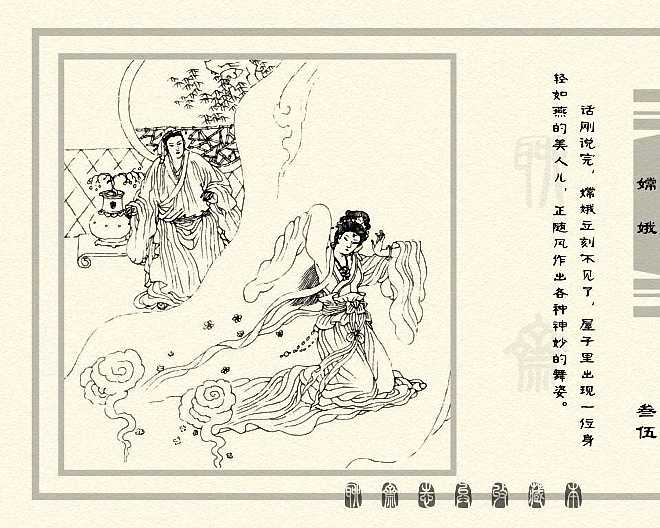 话刚说完，嫦娥立刻不见了，屋子里出现一位身
轻如燕的美人儿，正随风作出各种神妙的舞姿。
嫦娥
叁伍
聊斋志异收藏本